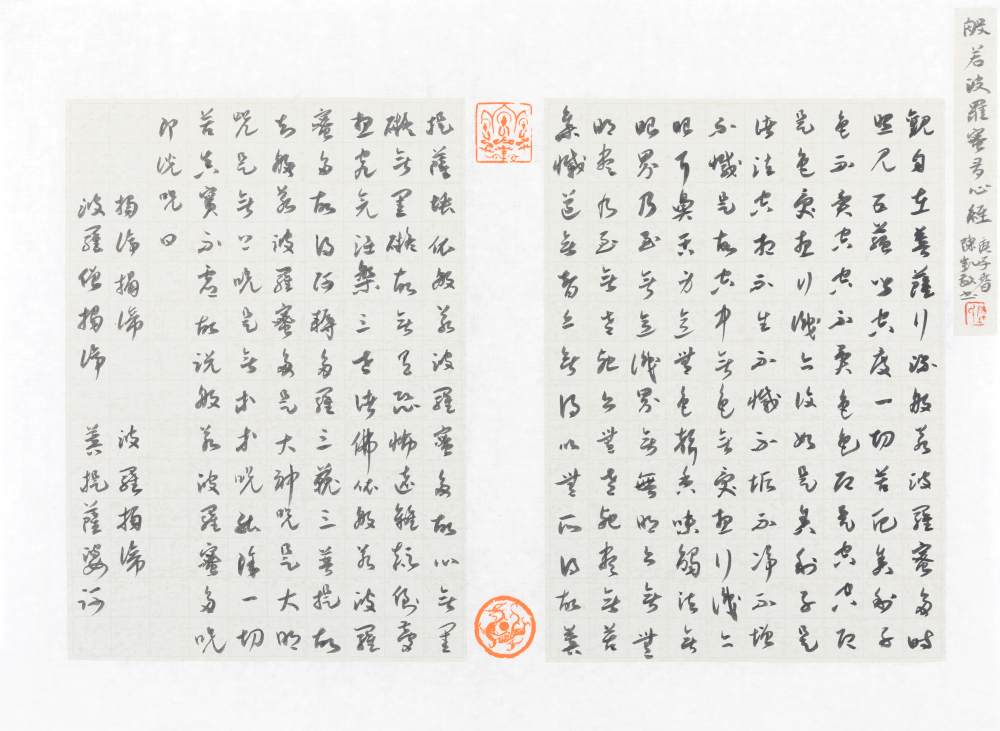 般若波羅蜜多心經
庚子春
觀自在菩薩行深般若波羅蜜多時
照見五蘊皆空度一切苦厄舍利子
色不異空空不異色色即是空空即
是色受想行識亦復如是舍利子是
諸法空相不生不滅不垢不淨不增
不減是故空中無色無受想行識無
眼耳鼻舌身意無色聲香味觸法無
眼界乃至無意識界無無明亦無無
明盡乃至無老死亦無老死盡無苦
集滅道無智亦無得以無所得故菩
提薩埵依般若波羅蜜多故心無罣
礙無罣礙故無有恐怖遠離顛倒夢
想究竟涅槃三世諸佛依般若波羅
蜜多故得阿耨多羅三藐三菩提故
知般若波羅蜜多是大神咒是大明
咒是無上咒是無等等咒能除一切
苦真實不虛故說般若波羅蜜多咒
即說咒曰
揭諦揭諦 波羅揭諦
波羅僧揭諦 菩提薩婆訶